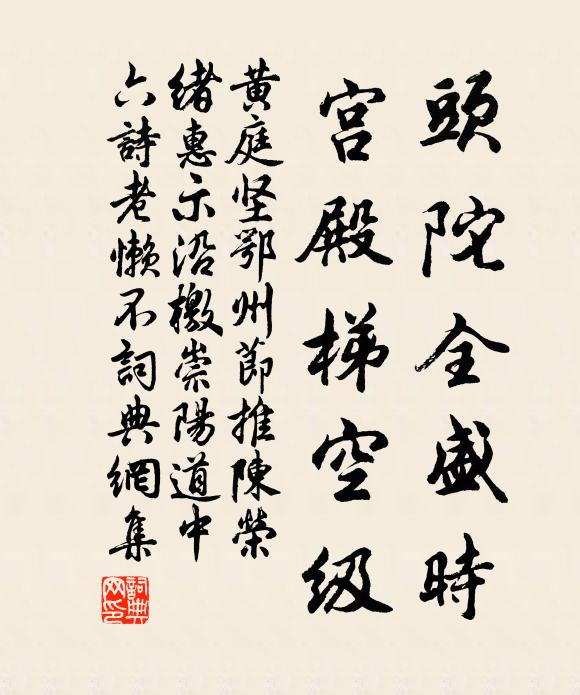 頭陀全盛時
宮殿梯空级
黃庭坚鄂州節推陳榮
緒惠示沿檄崇陽道中
六詩老懒不詞典網集
詞典网印